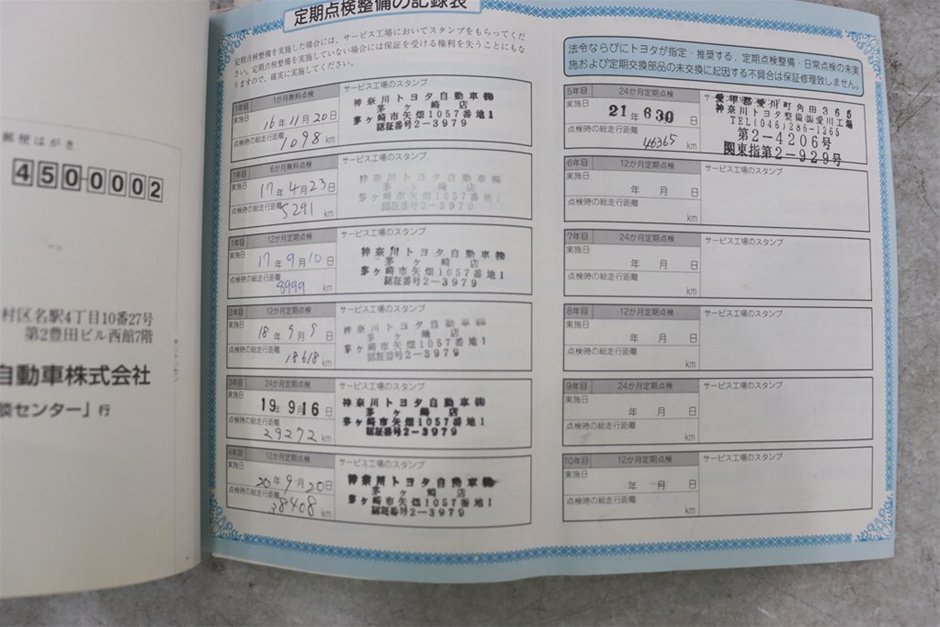 郵便はがき
450-0002
村区名駅4丁目10番27号
第2豊田ビル西館7階
自動車株式会社
談センター」行
定期点検整備の記録表
定期点検整備を実施した場合には、サービス工場においてスタンプをもらってくだ
さい。定期点検整備を実施していない場合には保証を受ける権利を失うことにもな
りますので、確実に実施してください。
1年目 1か月無料点検 サービス工場のスタンプ
実施日
16年11月20日
点検時の総走行距離
1098 km
神奈川トヨタ自動車㈱
茅ヶ崎店
茅ヶ崎市矢畑1057番地1
認証番号2-3979
1年目 6か月無料点検 サービス工場のスタンプ
実施日
17年4月23日
点検時の総走行距離
5291 km
神奈川トヨタ自動車㈱
茅ヶ崎店
茅ヶ崎市矢畑1057番地1
認証番号2-3979
1年目 12か月定期点検 サービス工場のスタンプ
実施日
17年9月10日
点検時の総走行距離
8999 km
神奈川トヨタ自動車㈱
茅ヶ崎店
茅ヶ崎市矢畑1057番地1
認証番号2-3979
2年目 12か月定期点検 サービス工場のスタンプ
実施日
18年9月9日
点検時の総走行距離
18618 km
神奈川トヨタ自動車㈱
茅ヶ崎店
茅ヶ崎市矢畑1057番地1
認証番号2-3979
3年目 24か月定期点検 サービス工場のスタンプ
実施日
19年9月16日
点検時の総走行距離
29272 km
神奈川トヨタ自動車㈱
茅ヶ崎店
茅ヶ崎市矢畑1057番地1
認証番号2-3979
4年目 12か月定期点検 サービス工場のスタンプ
実施日
20年9月20日
点検時の総走行距離
38408 km
神奈川トヨタ自動車㈱
茅ヶ崎店
茅ヶ崎市矢畑1057番地1
認証番号2-3979
法令ならびにトヨタが指定・推奨する、定期点検整備・日常点検の未実
施および定期交換部品の未交換に起因する不具合は保証修理致しません。
5年目 24か月定期点検 サービス工場のスタンプ
実施日
21年6月30日
点検時の総走行距離
46365 km
愛甲郡愛川町角田365
神奈川トヨタ整備㈱愛川工場
TEL(046)286-1265
第2-4206号
関東指第2-929号
6年目 12か月定期点検 サービス工場のスタンプ
実施日
年 月 日
点検時の総走行距離
km
7年目 24か月定期点検 サービス工場のスタンプ
実施日
年 月 日
点検時の総走行距離
km
8年目 12か月定期点検 サービス工場のスタンプ
実施日
年 月 日
点検時の総走行距離
km
9年目 24か月定期点検 サービス工場のスタンプ
実施日
年 月 日
点検時の総走行距離
km
10年目 12か月定期点検 サービス工場のスタンプ
実施日
年 月 日
点検時の総走行距離
km